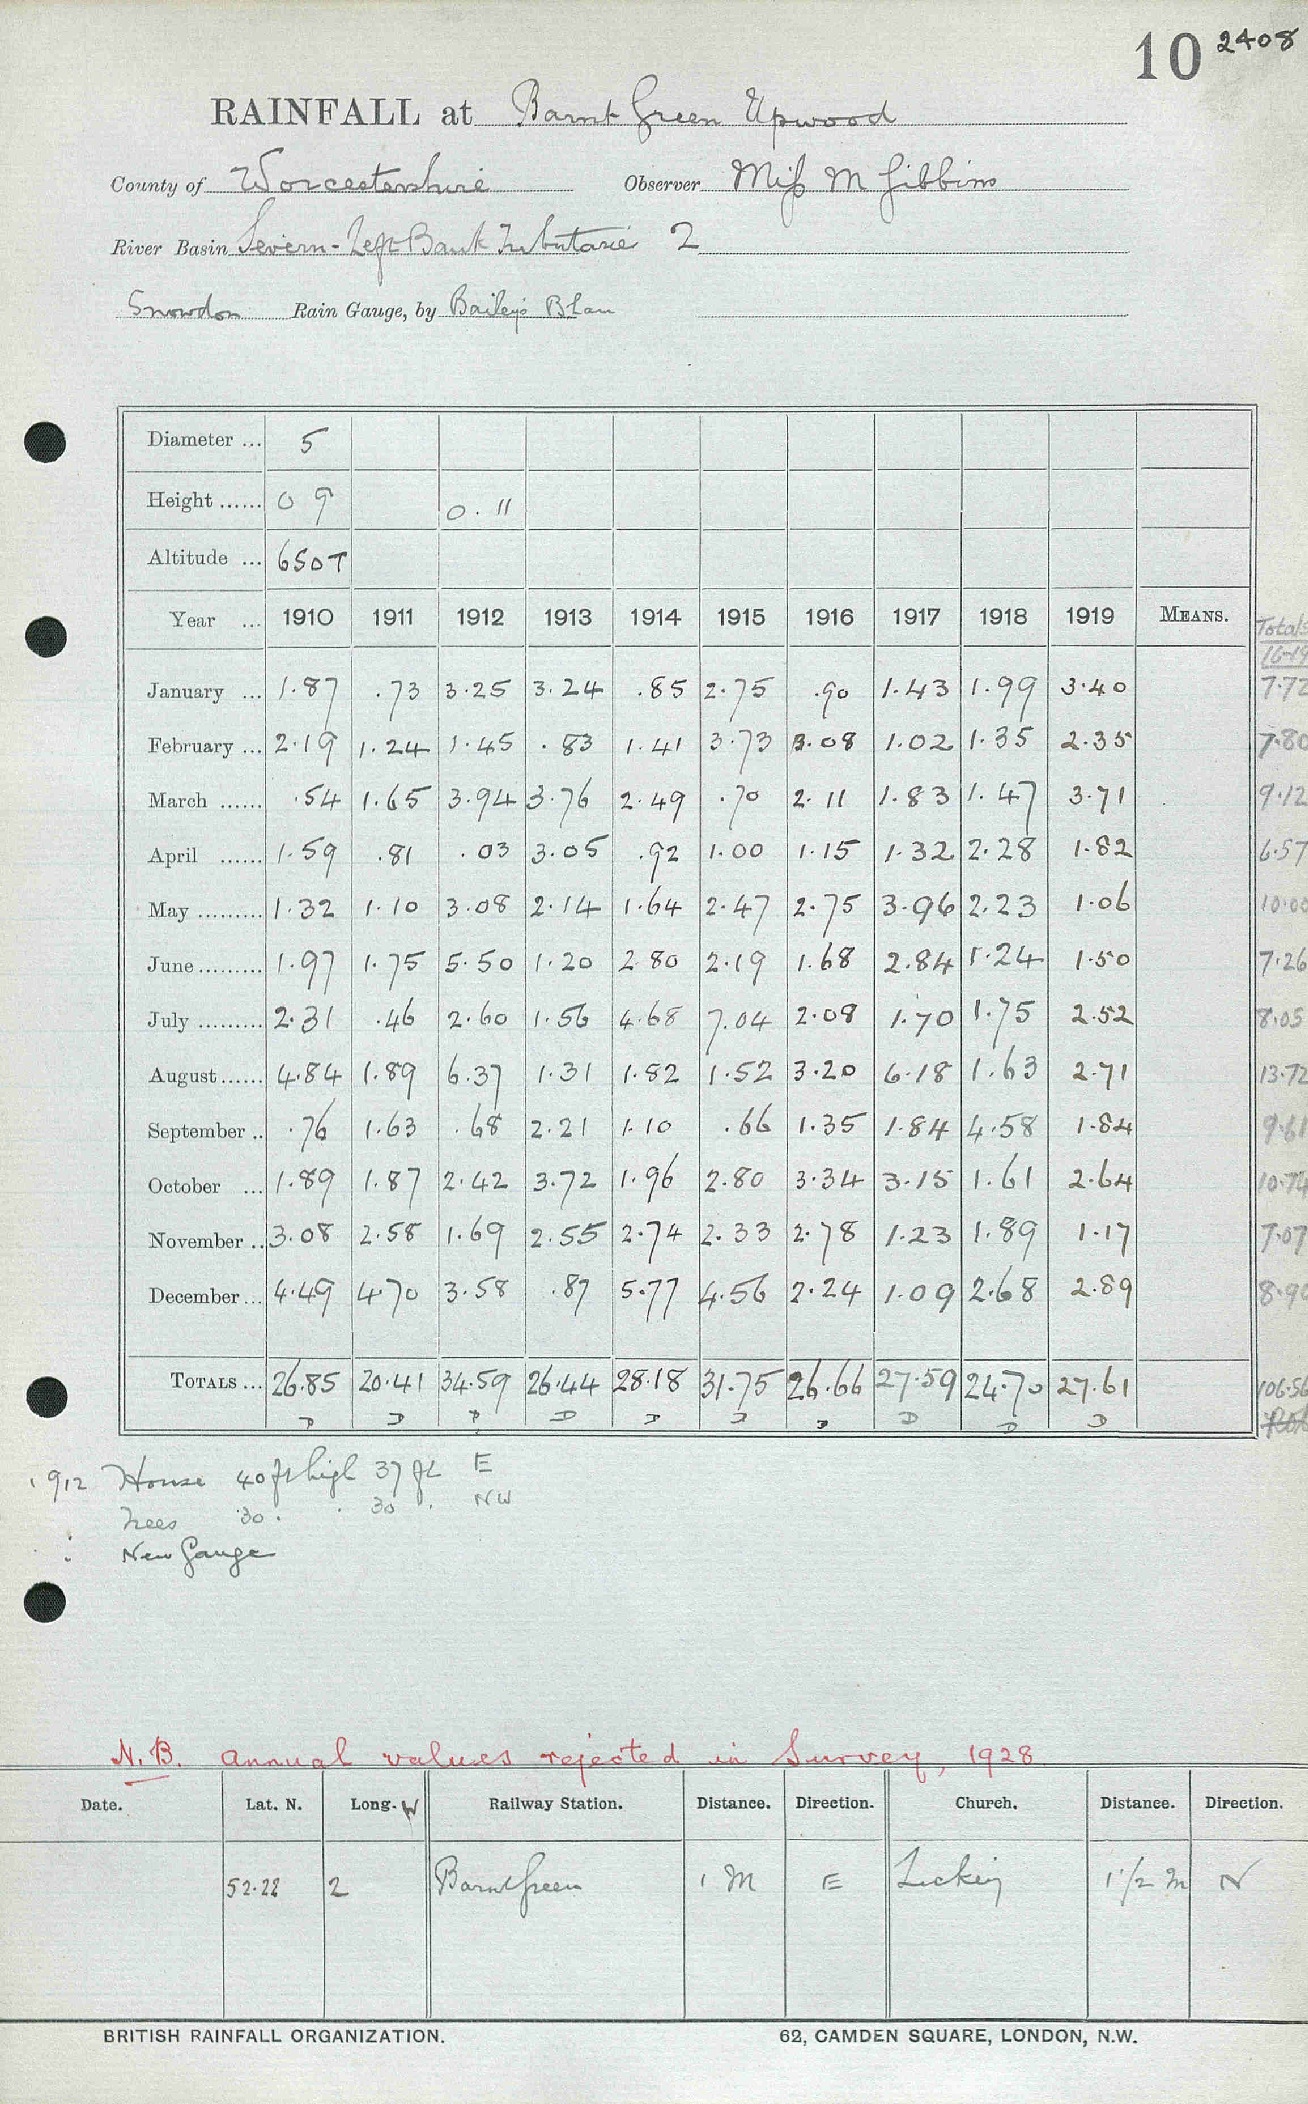 10 2408
RAINFALL at Barnt Green Upwood
County of Worcestershire Observer Miss M Gibbins
River Basin Severn-Left Bank Tributaries 2
Snowdon Rain Gauge, by Baileys Blan
Diameter ... 5
Height ...... 0 9 0.11
Altitude ... 650T
Year ... 1910 1911 1912 1913 1914 1915 1916 1917 1918 1919 MEANS. Totals
16-19
January ... 1.87 .73 3.25 3.24 .85 2.75 .90 1.43 1.99 3.40 7.72
February ... 2.19 1.24 1.45 .83 1.41 3.73 3.08 1.02 1.35 2.35 7.80
March ...... .54 1.65 3.94 3.76 2.49 .70 2.11 1.83 1.47 3.71 9.12
April ...... 1.59 .81 .03 3.05 .92 1.00 1.15 1.32 2.28 1.82 6.57
May ......... 1.32 1.10 3.08 2.14 1.64 2.47 2.75 3.96 2.23 1.06 10.00
June ......... 1.97 1.75 5.50 1.20 2.80 2.19 1.68 2.84 1.24 1.50 7.26
July ......... 2.31 .46 2.60 1.56 4.68 7.04 2.08 1.70 1.75 2.52 8.05
August ...... 4.84 1.89 6.37 1.31 1.82 1.52 3.20 6.18 1.63 2.71 13.72
September .. .76 1.63 .68 2.21 1.10 .66 1.35 1.84 4.58 1.84 9.61
October ... 1.89 1.87 2.42 3.72 1.96 2.80 3.34 3.15 1.61 2.64 10.74
November .. 3.08 2.58 1.69 2.55 2.74 2.33 2.78 1.23 1.89 1.17 7.07
December ... 4.49 4.70 3.58 .87 5.77 4.56 2.24 1.09 2.68 2.89 8.90
TOTALS ... 26.85 20.41 34.59 26.44 28.18 31.75 26.66 27.59 24.70 27.61 106.56
D D D D D D D D D D
1912 House 40 ft high 37 ft E
Trees 30 . 30 . NW
: New Gauge
N.B. Annual values rejected in Survey, 1928
Date. Lat. N. Long. W Railway Station. Distance. Direction. Church. Distance. Direction.
52.22 2 Barnt Green 1 M E Lickey 1 1/2 M N
BRITISH RAINFALL ORGANIZATION. 62, CAMDEN SQUARE, LONDON, N.W.